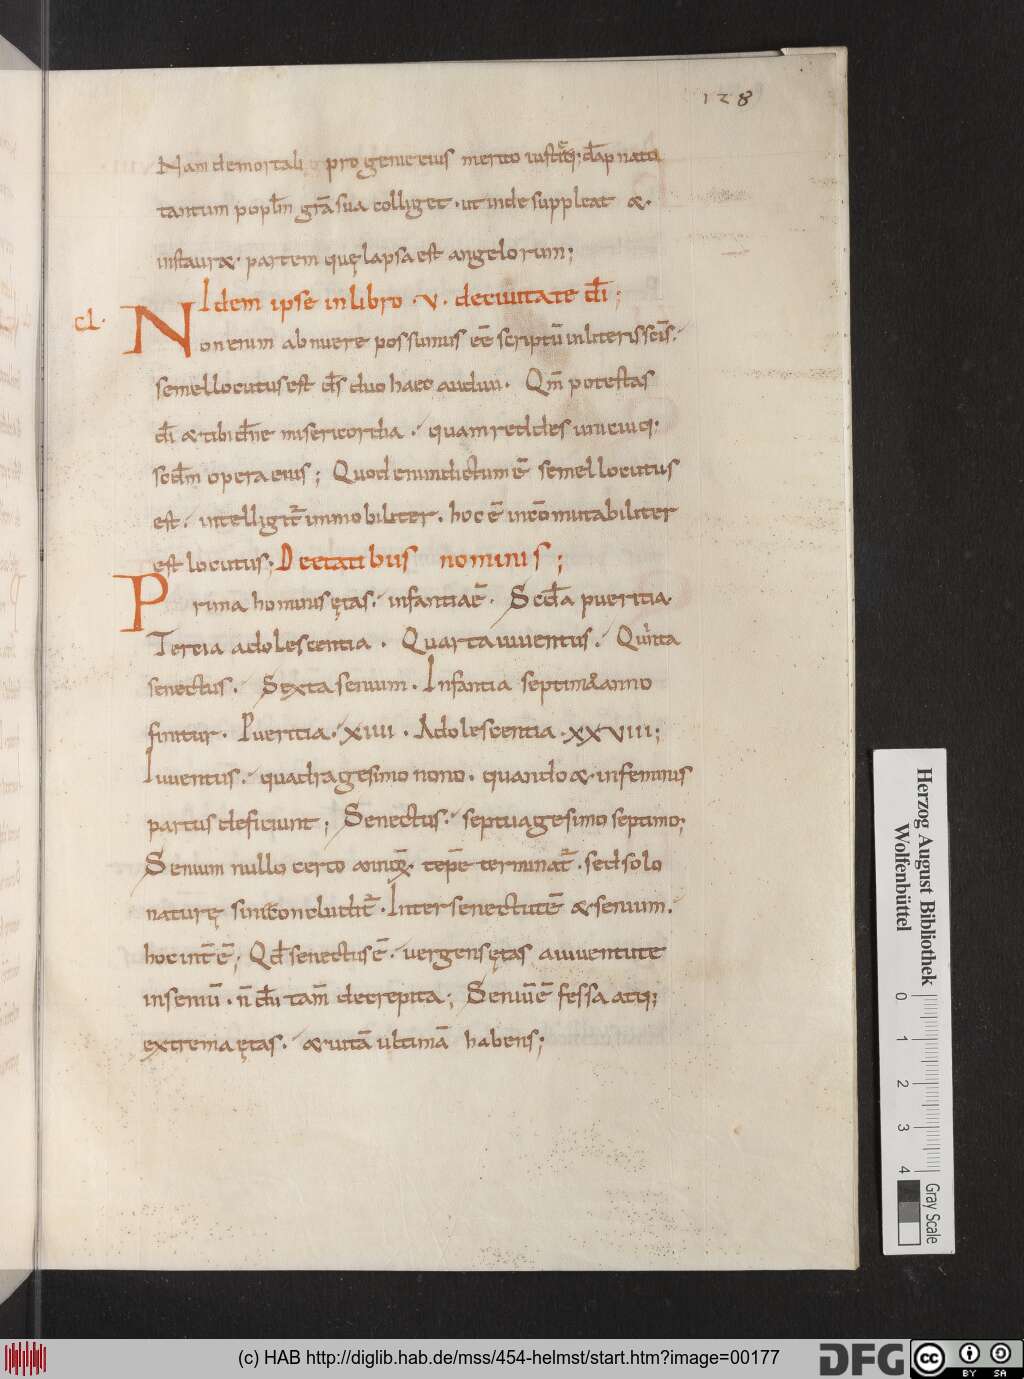 128
Nam de mortali progenie eius merito iustęq; dāpnata
tantum popl̄m grā sua colliget · ut inde suppleat &·
instaur&· partem quę lapsa est angelorum;
Idem ipse in libro · v · de ciuitate d̄i;
cl·
Non enim abnuere possumus eē scriptū in literis sc̄is·
semel locutus est d̄s duo haec audiui · Qm̄ potestas
d̄i & tibi dn̄e misericordia · quam reddes unicuiq;
scd̄m opera eius; Quod enim dictum ē semel locutus
est · intelligit̄ immobiliter · hoc ē incōmutabiliter
est locutus; De etatibus nominis;
Prima hominis ętas · infantia ē · Scd̄a pueritia·
Tercia adolescentia · Quarta iuuentus · Quinta
senectus · Sexta senium · Infantia septimo anno
finitur · Pueritia · xiiii · Adolescentia · xxviii;
Iuuentus · quadragesimo nono · quando & in feminis
partus deficiunt; Senectus · septuagesimo septimo;
Senium nullo certo annoꝝ · tēpe terminat̄ · sed solo
naturę fine concludit̄ · Inter senectutē & senium ·
hoc int̄ ē; Qd̄ senectus ē · uergens ętas a iuuentute
in seniū · n̄ dū tam̄ decrepita; Seniū ē fessa atq;
extrema ętas · & uitā ultimā habens;
Herzog August Bibliothek
Wolfenbüttel
0 1 2 3 4
Gray Scale
(c) HAB http://diglib.hab.de/mss/454-helmst/start.htm?image=00177
DFG
cc BY SA